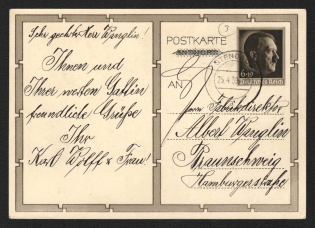 Sehr geehrter Herr Wenglin!
Ihnen und
Ihrer werten Gattin
freundliche Grüße
Ihr
Karl Wolff u. Frau!
3
POSTKARTE
ANTWORT
AN
6+19
Deutsches Reich
Herrn Fabrikdirektor
Albert Wenglin
Braunschweig
Hamburgerstraße